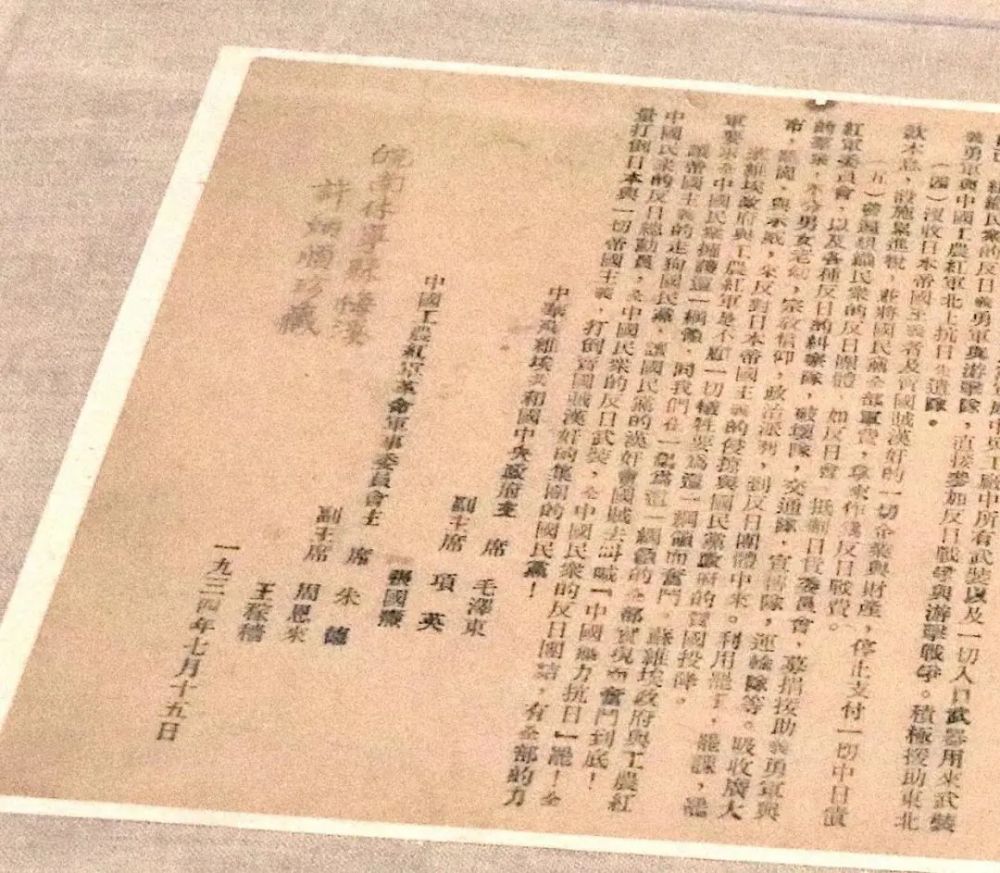 國庫中與工廠中所有武裝以及一切入口武器用來武裝
組織民衆的反日義勇軍與游擊隊，直接參加反日戰爭與游擊戰爭。積極援助東北
義勇軍與中國工農紅軍北上抗日先遣隊。
（四）沒收日本帝國主義者及賣國賊漢奸的一切企業與財產，停止支付一切中日債
款本息，設施累進稅，並將國民黨全部軍費，拿來作為反日戰費。
（五）普遍組織民衆的反日團體，如反日會，抵制日貨委員會，募捐援助義勇軍與
紅軍委員會，以及各種反日的糾察隊，破壞隊，交通隊，宣傳隊，運輸隊等。吸收廣大
的羣衆，不分男女老幼，宗教信仰，政治派別，到反日團體中來。利用罷工，罷課，罷
市，罷崗，與示威，來反對日本帝國主義的侵掠與國民黨政府的賣國投降。
蘇維埃政府與工農紅軍是不顧一切犧牲要為這一綱領而奮鬥。蘇維埃政府與工農紅
軍要求全中國民衆擁護這一綱領，同我們在一起為這一綱領的全部實現而奮鬥到底！
讓帝國主義的走狗國民黨，讓國民黨的漢奸賣國賊去叫喊『中國無力抗日』罷！全
中國民衆的反日總動員，全中國民衆的反日武裝，全中國民衆的反日團結，有全部的力
量打倒日本與一切帝國主義，打倒賣國賊漢奸的集團的國民黨！
中華蘇維埃共和國中央政府主 席 毛澤東
副主席 項 英
張國燾
中國工農紅軍革命軍事委員會主 席 朱 德
副主席 周恩來
王稼穡
一九三四年七月十五日
皖南休寧
許 珍藏